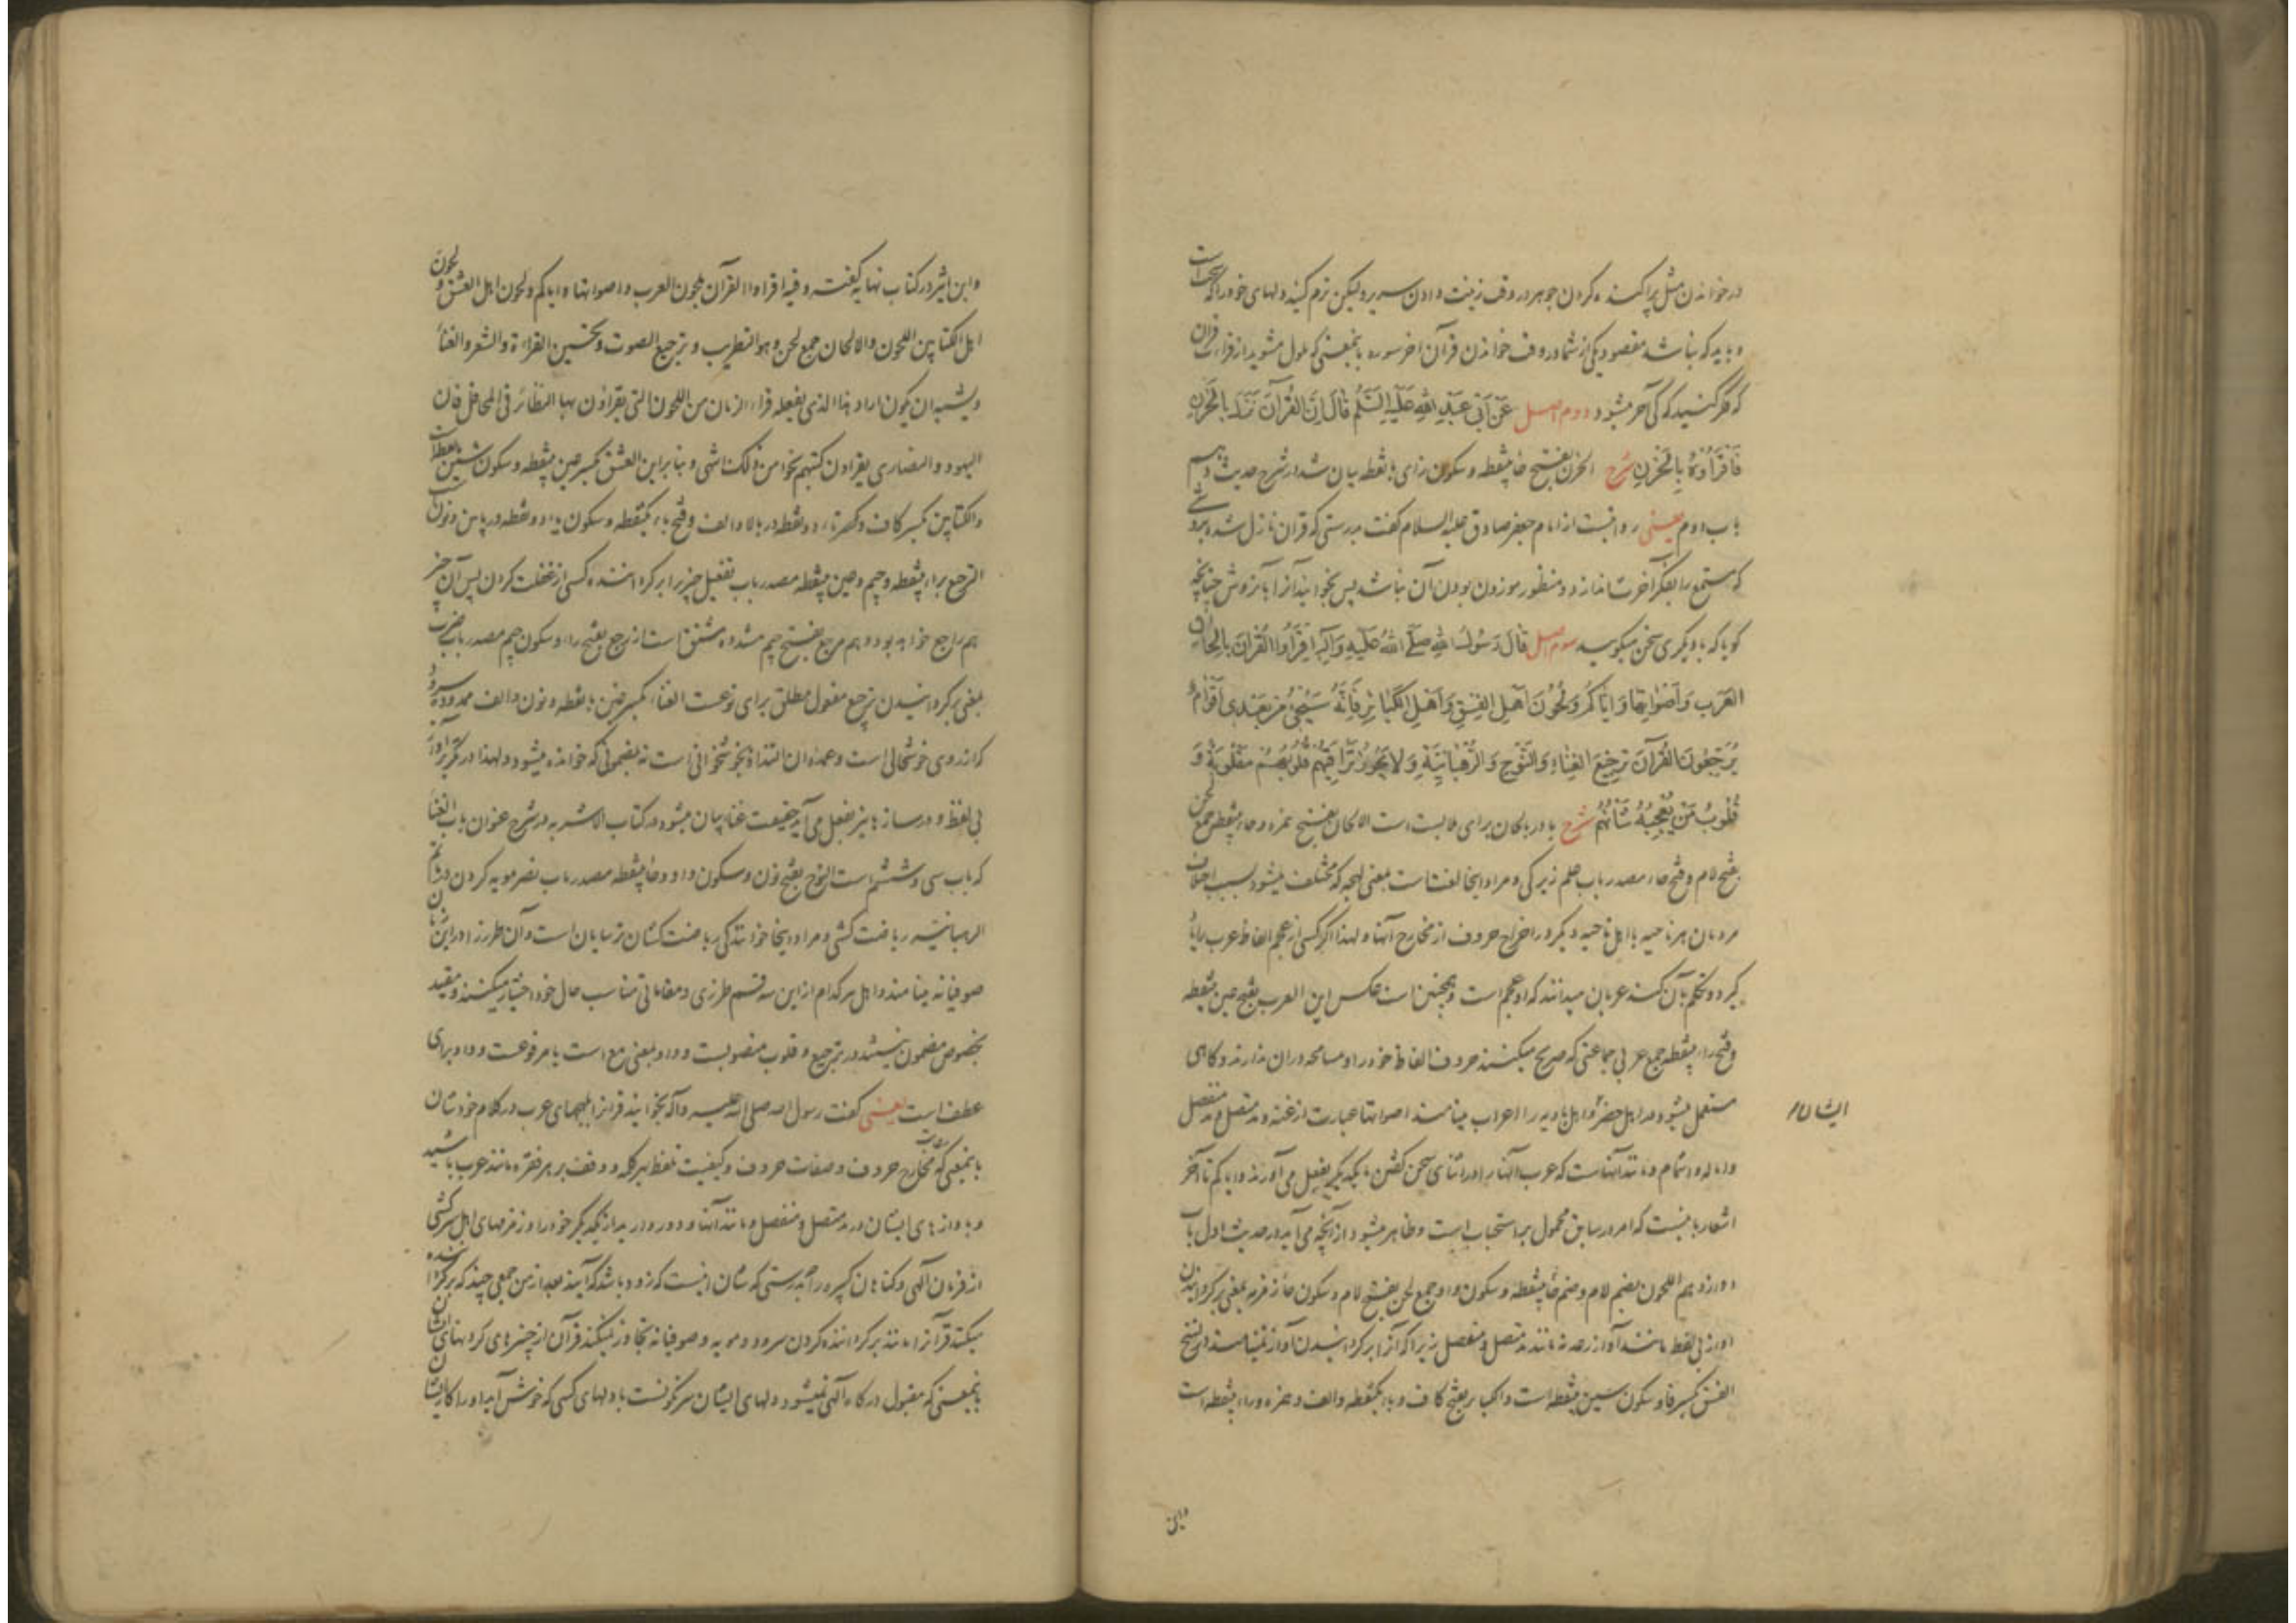 در خواندن مثل پراکنده کردن جوهر در وقت زینت دادن سریر ولیکن نرم کنید دلهای خود را که سخت است
و باید که نباشد مقصود یکی از شما در وقت خواندن قرآن آخر سوره بایمعنی که ملول مشوید از قراءت قرآن
که فکر کنید که کی آخر میشود دوم اصل عَنْ اَبی عَبْدِ اللهِ عَلَیْهِ السَّلٰمُ قٰالَ اِنَّ الْقُرْآنَ نَزَلَ بِالْحُزْنِ
فَاقْرَأُوهُ بِالْحُزْنِ شرح الحزن بفتح حاء بینقطه و سکون زای بانقطه بیان شد در شرح حدیث دهم
باب دوم یعنی روایتست از امام جعفر صادق علیه السلام گفت بدرستی که قران نازل شده بروشی
که مستمع را بفکر آخرت اندازد و منظور موزون بودن آن نباشد پس بخوانید آنرا بآنروش چنانچه
گویا که با دیگری سخن میگویید سوم اصل قٰالَ رَسُولُ اللهِ صَلَّی اللهُ عَلَیْهِ وَآلِهِ اِقْرَأُوا الْقُرْآنَ بِاَلْحٰانِ
الْعَرَبِ وَاَصْوٰاتِهٰا وَاِیّٰاکُمْ وَلُحُونَ اَهْلِ الْفِسْقِ وَاَهْلِ الْکَبٰائِرِ فَاِنَّهُ سَیَجِیءُ مِنْ بَعْدِی اَقْوٰامٌ
یُرَجِّعُونَ الْقُرْآنَ تَرْجِیعَ الْغِنٰاءِ وَالنَّوْحِ وَالرَّهْبٰانِیَّةِ وَلٰا یَجُوزُ تَرٰاقِیَهُمْ قُلُوبُهُمْ مَقْلُوبَةٌ وَ
قُلُوبُ مَنْ یُعْجِبُهُ شَأْنُهُمْ شرح با در بالحان برای ملابست است الالحان بفتح همزه و حاء بینقطه جمع لحن
بفتح لام و فتح حاء مصدر باب علم زیرکی و مراد اینجا لغت است بمعنی لهجه که مختلف میشود بسبب اختلاف
مردمان هر ناحیه با اهل ناحیه دیگر در اخراج حروف از مخارج آنها و لهذا اگر کسی از عجم الفاظ عرب را یاد
گیرد و تکلم بآن کند عربان میدانند که او عجم است و همچنین است عکس این العرب بفتح عین بینقطه
و فتح راء بینقطه جمع عربی جماعتی که صریح میکنند حروف الفاظ خود را و مسامحه در ان ندارند و گاهی
مستعمل میشود در اهل حضر و اهل بادیه را اعراب مینامند اصواتها عبارت از غنه و مد متصل و مد منفصل
ایشان
و اماله و اشمام و مانند آنهاست که عرب آنها را در اثنای سخن گفتن با یکدیگر بفعل می آورند و ایاکم تا آخر
اشعار باینست که امر در سابق محمول بر استحباب است و ظاهر میشود از آنچه می آید در حدیث اول باب
دوازدهم اللحون بضم لام و ضم حاء بینقطه و سکون واو جمع لحن بفتح لام و سکون حاء نیز مزید بمعنی برگردانیدن
آواز بی لفظ مانند آواز رعد نه مانند مد متصل و منفصل زیرا که آنرا برگردانیدن آواز نمینامند در نسخ
الفسق بکسر فا و سکون سین بینقطه است و الکبایر بفتح کاف و باء یکنقطه و الف و همزه و راء بینقطه است
و ابن
و ابن اثیر در کتاب نهایه گفته و فیه اقراءوا القرآن بلحون العرب و اصواتها و ایاکم و لحون اهل العشق و لحون
اهل الکتابین اللحون و الالحان جمع لحن و هو التطریب و ترجیع الصوت و تحسین القراءة و الشعر و الغناء
و یشبه ان یکون اراد هذا الذی یفعله قراء الزمان من اللحون التی یقراؤن بها النظائر فی المحافل فان
الیهود و النصاری یقراون کتبهم نحوا من ذلک ناشی و بنابراین العشق بکسر عین بینقطه و سکون شین بانقطه است
و الکتابین بکسر کاف و کسر تاء دو نقطه در بالا و الف و فتح باء یکنقطه و سکون یاء دو نقطه در پایین و نونست
الترجیع براء بینقطه و جیم و عین بینقطه مصدر باب تفعیل چیزی را برگرداننده کسی از غفلت کردن پس آن چیز
هم راجع خواهد بود و هم مرجع بفتح جیم مشدده مشتق است از رجع بفتح راء و سکون جیم مصدر باب ضرب
بمعنی برگردانیدن ترجیع مفعول مطلق برای نوعست الغناء بکسر غین بانقطه و نون و الف ممدوده سرود
که از روی خوشحالی است و عمده ان التذاذ بخوشخوانی است نه بمضمونی که خوانده میشود و لهذا در تکریر آواز
بی لفظ و در ساز ها نیز بفعل می آید حقیقت غناء بیان میشود در کتاب الاشربه در شرح عنوان باب الغناء
که باب سی و ششم است النوح بفتح نون و سکون واو و حاء بینقطه مصدر باب نصر مویه کردن در ماتم
الرهبانیه ریاضت کشی و مراد اینجا خوانندگی ریاضت کشان ترسایان است و آن طرز را در این زمان
صوفیانه مینامند و اهل هر کدام از این سه قسم طرزی و مقاماتی مناسب حال خود اختیار میکنند و مقید
بخصوص مضمون نیستند در ترجیع و قلوب منصوبست و واو بمعنی مع است یا مرفوعست و واو برای
عطف است یعنی گفت رسول الله صلی الله علیه و آله بخوانید قرانرا بلهجهای عرب در کلام خودشان
بایمعنی که رعایت مخارج حروف و صفات حروف و کیفیت تلفظ بهر کلمه و وقف بر هر فقره مانند عرب باشید
و با آوازهای ایشان در مد متصل و منفصل و مانند آنها و دور دارید از یکدیگر خود را و زمزمهای اهل سرکشی
از فرمان الهی و گناهان کبیره را بدرستی که شان اینست که زود باشد که آیند بعد از من جمعی چند که برگردانیده
میکنند قرآنرا مانند برگرداننده کردن سرود و مویه و صوفیانه تجاوز نمیکند قرآن از چنبرهای گردنهای ایشان
بایمعنی که مقبول درگاه الهی نمیشود دلهای ایشان سرنگونست با دلهای کسی که خوش آید او را کار ایشان